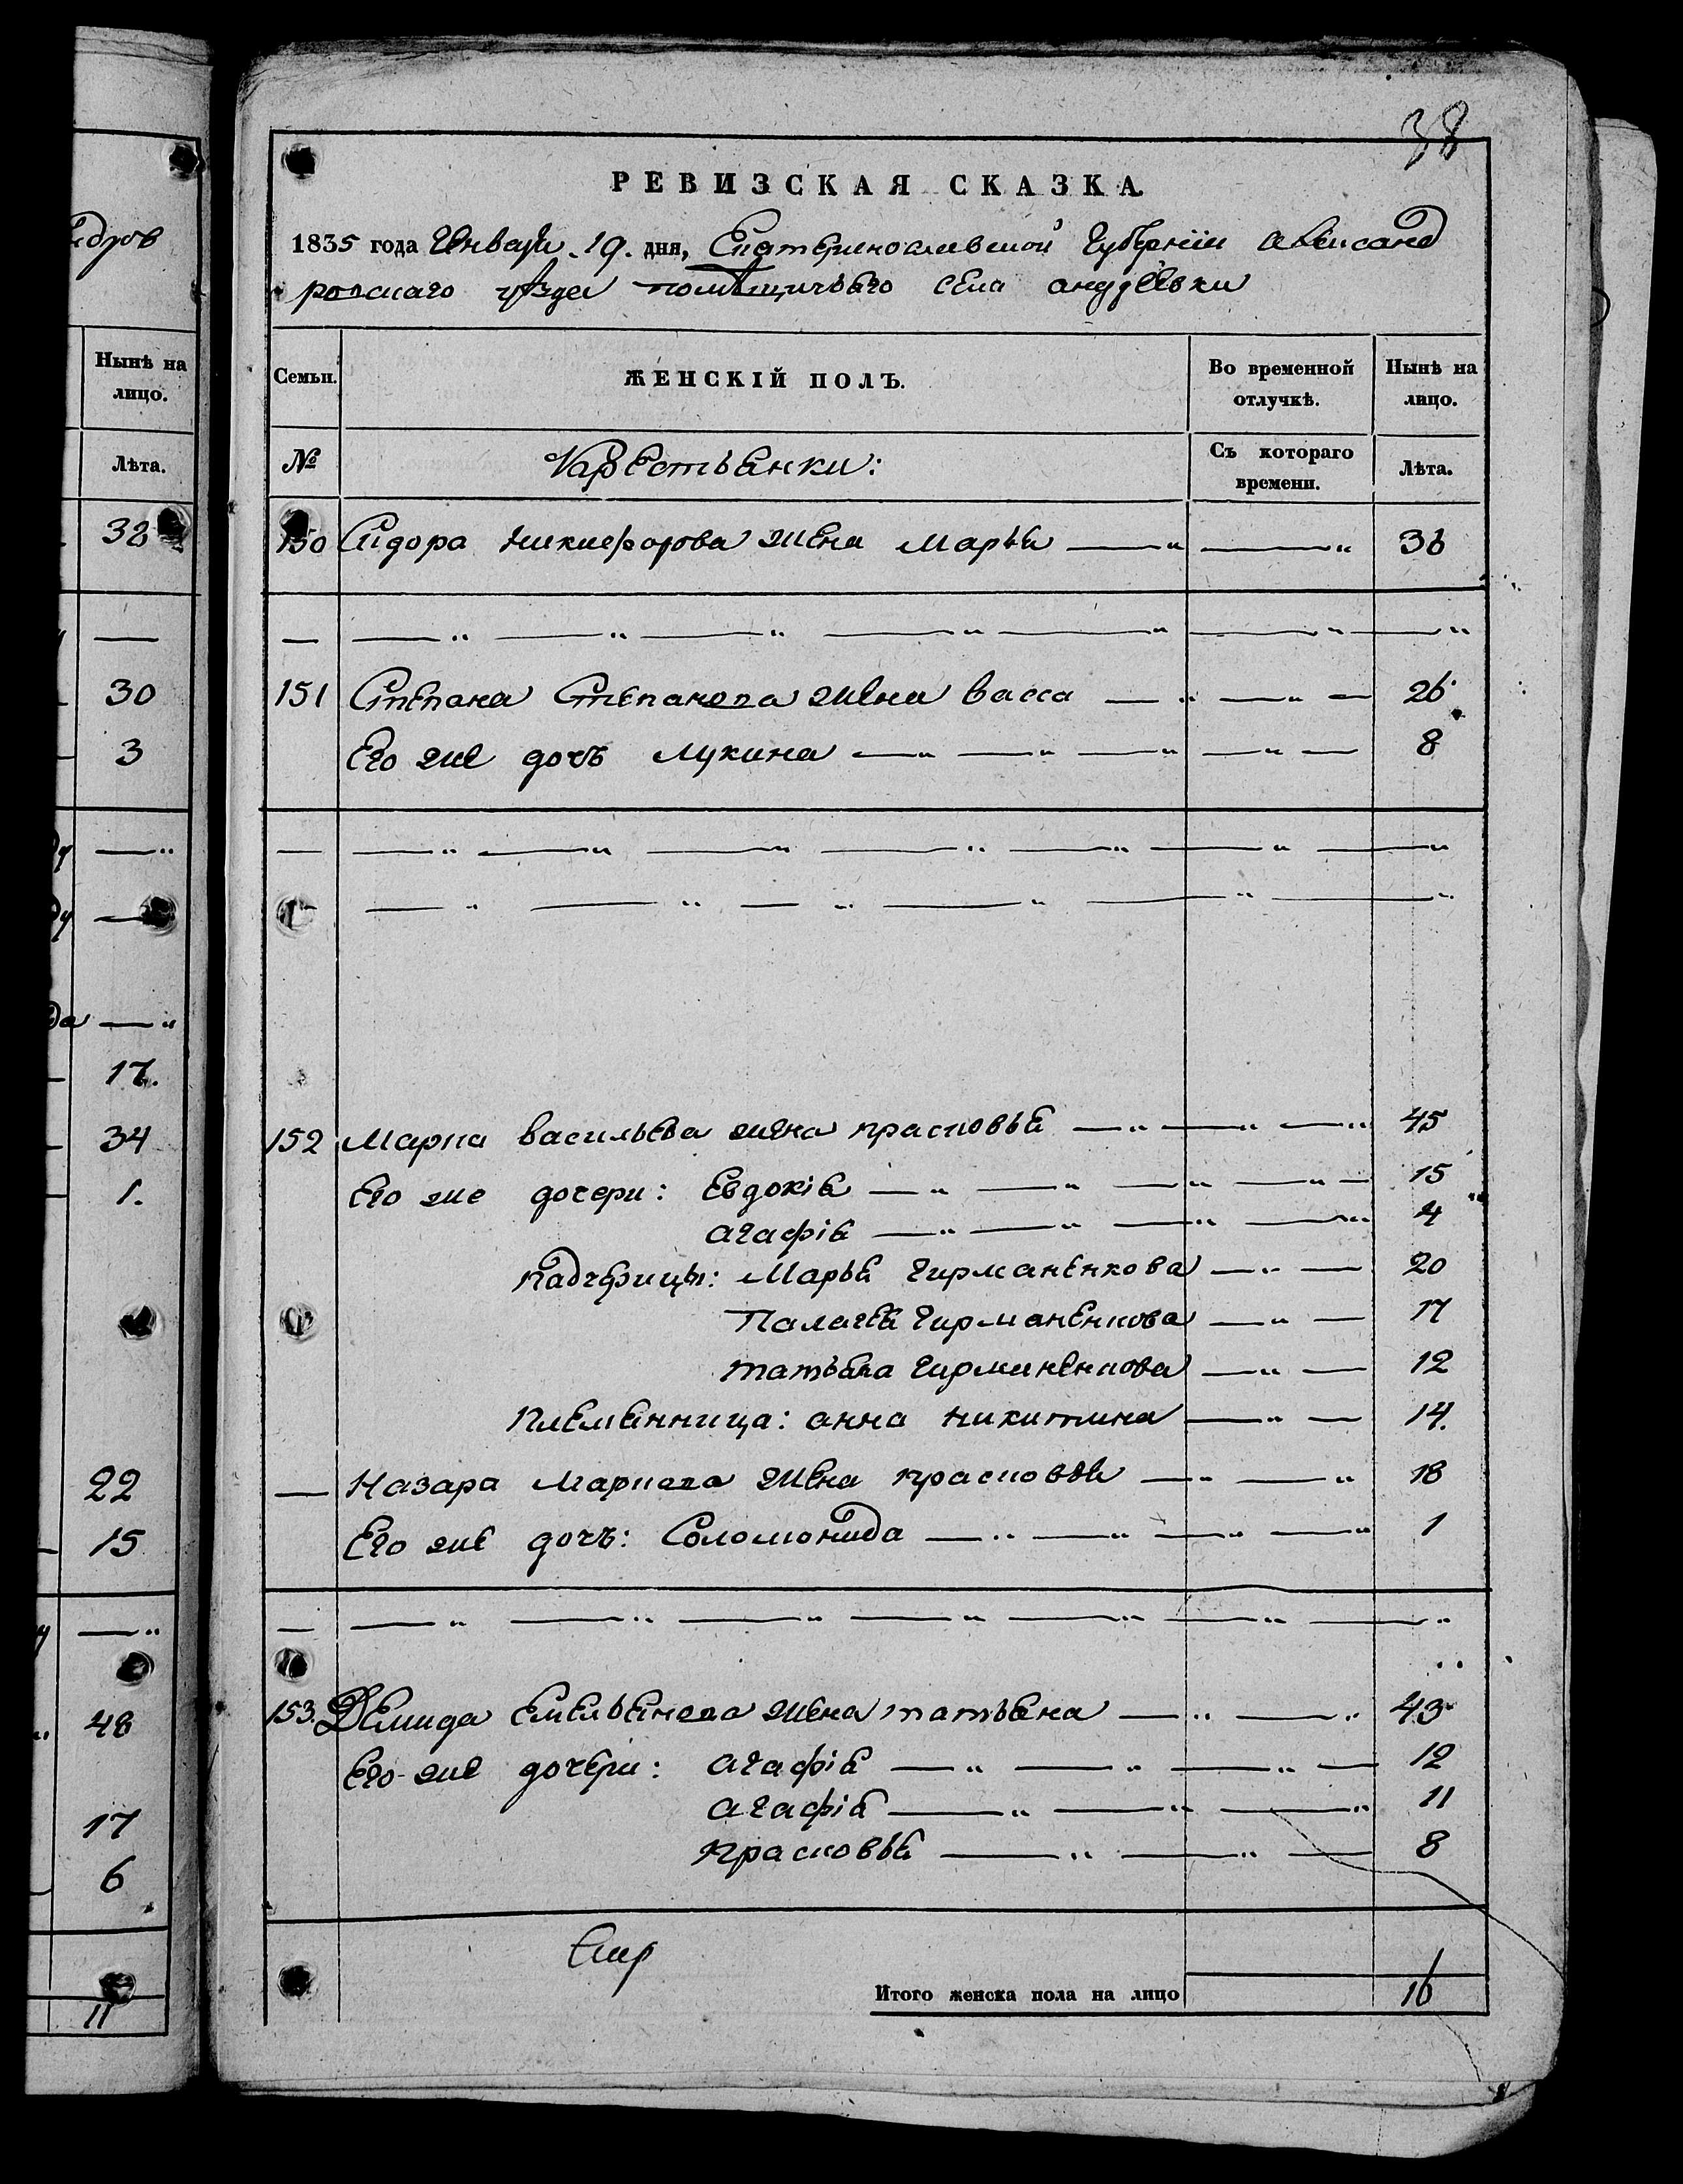 38
РЕВИЗСКАЯ СКАЗКА.
1835 года Генваря 19. дня, Екатеринославской Губернiи Александ
ровскаго уѣзда помѣщичьяго села андрѣевки
Семьи.
ЖЕНСКІЙ ПОЛЪ.
Во временной отлучкѣ.
Нынѣ на лицо.
№
Крестьянки:
Съ котораго времени.
Лѣта.
150 Сидора Никифорова жена Марья 36
151 Степана Степанова жена васса 26
Его же дочь Лукина 8
152 Марка васильева жена прасковья 45
Его же дочери: Евдокія 15
агафія 4
падчерицы: Марья Гирманенкова 20
Палагея Гирманенкова 17
татьяна Гирманенкова 12
племянница: анна Никитина 14.
Назара Маркова жена прасковья 18
Его же дочь: Соломонида 1
153. Демида Емельянова жена татьяна 43
Его же дочери: агафія 12
агафія 11
прасковья 8
Итого женска пола на лицо 16
едров
Нынѣ на лицо.
Лѣта.
38
30
3
17.
34
1.
22
15
48
17
6
11